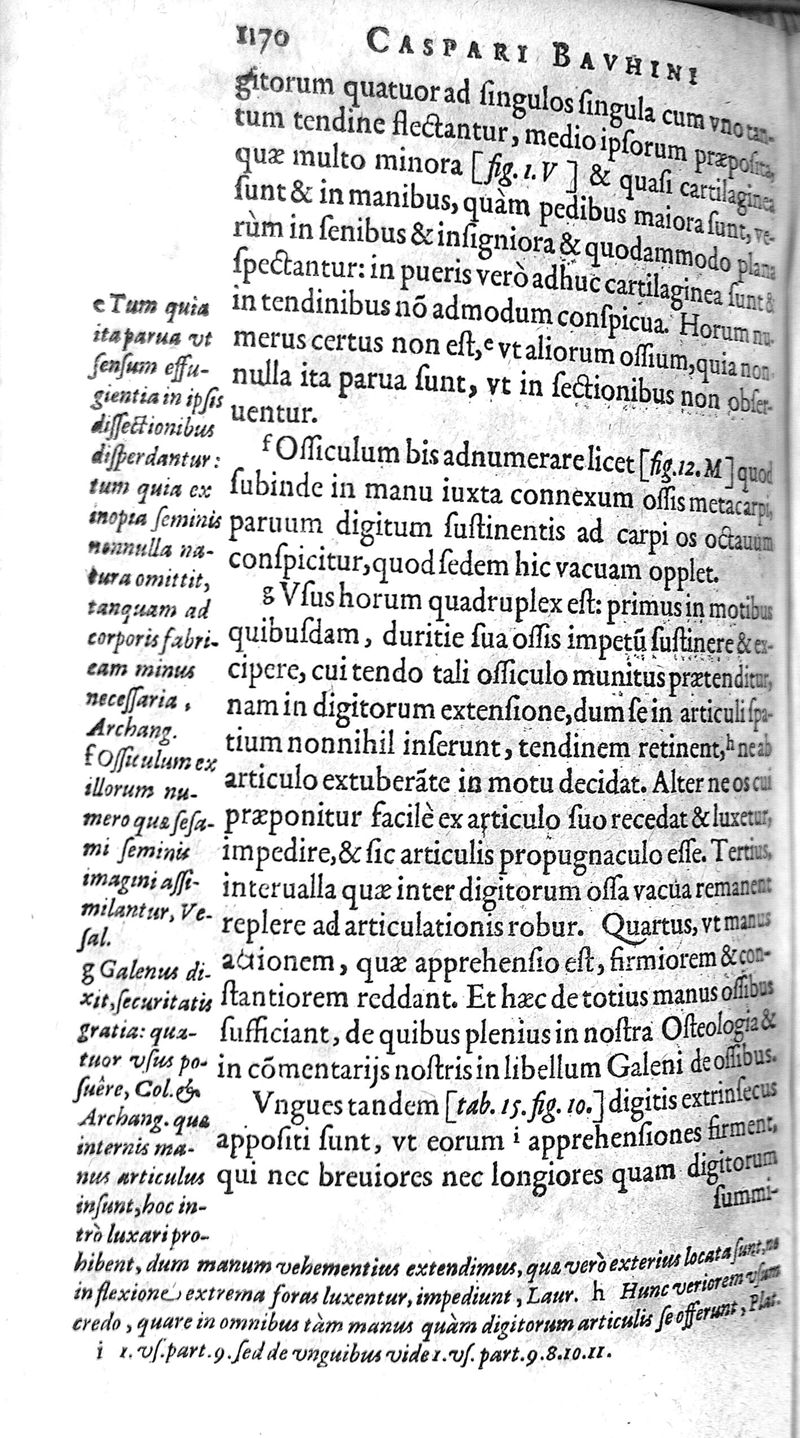 1170 CASPARI BAVHINI
gitorum quatuor ad ſingulos ſingula cum vno tan-
tum tendine flectantur, medio ipſorum præpoſita,
quæ multo minora [fig. 1. V] & quaſi cartilaginea
ſunt & in manibus, quàm pedibus maiora ſunt, ve-
rùm in ſenibus & inſigniora & quodammodo plana
ſpectantur: in pueris verò adhuc cartilaginea ſunt &
in tendinibus nõ admodum conſpicua. Horum nu-
merus certus non eſt, e vt aliorum oſſium, quia non
nulla ita parua ſunt, vt in ſectionibus non obſer-
uentur.
f Oſſiculum bis adnumerare licet [fig. 12. M] quod
ſubinde in manu iuxta connexum oſſis metacarpi,
paruum digitum ſuſtinentis ad carpi os octauum
conſpicitur, quod ſedem hic vacuam opplet.
g Vſus horum quadruplex eſt: primus in motibus
quibuſdam, duritie ſua oſſis impetũ ſuſtinere & ex-
cipere, cui tendo tali oſſiculo munitus prætenditur,
nam in digitorum extenſione, dum ſe in articuli ſpa-
tium nonnihil inſerunt, tendinem retinent, h ne ab
articulo extuberãte in motu decidat. Alter ne os cui
præponitur facilè ex articulo ſuo recedat & luxetur,
impedire, & ſic articulis propugnaculo eſſe. Tertius,
interualla quæ inter digitorum oſſa vacua remanent
replere ad articulationis robur. Quartus, vt manus
actionem, quæ apprehenſio eſt, firmiorem & con-
ſtantiorem reddant. Et hæc de totius manus oſſibus
ſufficiant, de quibus plenius in noſtra Oſteologia &
in cõmentarijs noſtris in libellum Galeni de oſſibus.
Vngues tandem [tab. 15. fig. 10.] digitis extrinſecus
appoſiti ſunt, vt eorum i apprehenſiones firment,
qui nec breuiores nec longiores quam digitorum
ſummi-
e Tum quia
ita parua vt
ſenſum effu-
gientia in ipſis
diſſectionibus
diſperdantur:
tum quia ex
inopia ſeminis
nonnulla na-
tura omittit,
tanquam ad
corporis fabri-
cam minus
neceſſaria,
Archang.
f Oſſiculum ex
illorum nu-
mero quæ ſeſa-
mi ſeminis
imagini aſſi-
milantur, Ve-
ſal.
g Galenus di-
xit, ſecuritatis
gratia: qua-
tuor vſus po-
ſuêre, Col. &
Archang. quæ
internis ma-
nus articulus
inſunt, hoc in-
trò luxari pro-
hibent, dum manum vehementius extendimus, quæ verò exterius locata ſunt, ne
in flexione extrema foras luxentur, impediunt, Laur. h Hunc veriorem vſum
credo, quare in omnibus tàm manus quàm digitorum articulis ſe offerunt, Plat.
i 1. vſ. part. 9. ſed de vnguibus vide 1. vſ. part. 9. 8. 10. 11.